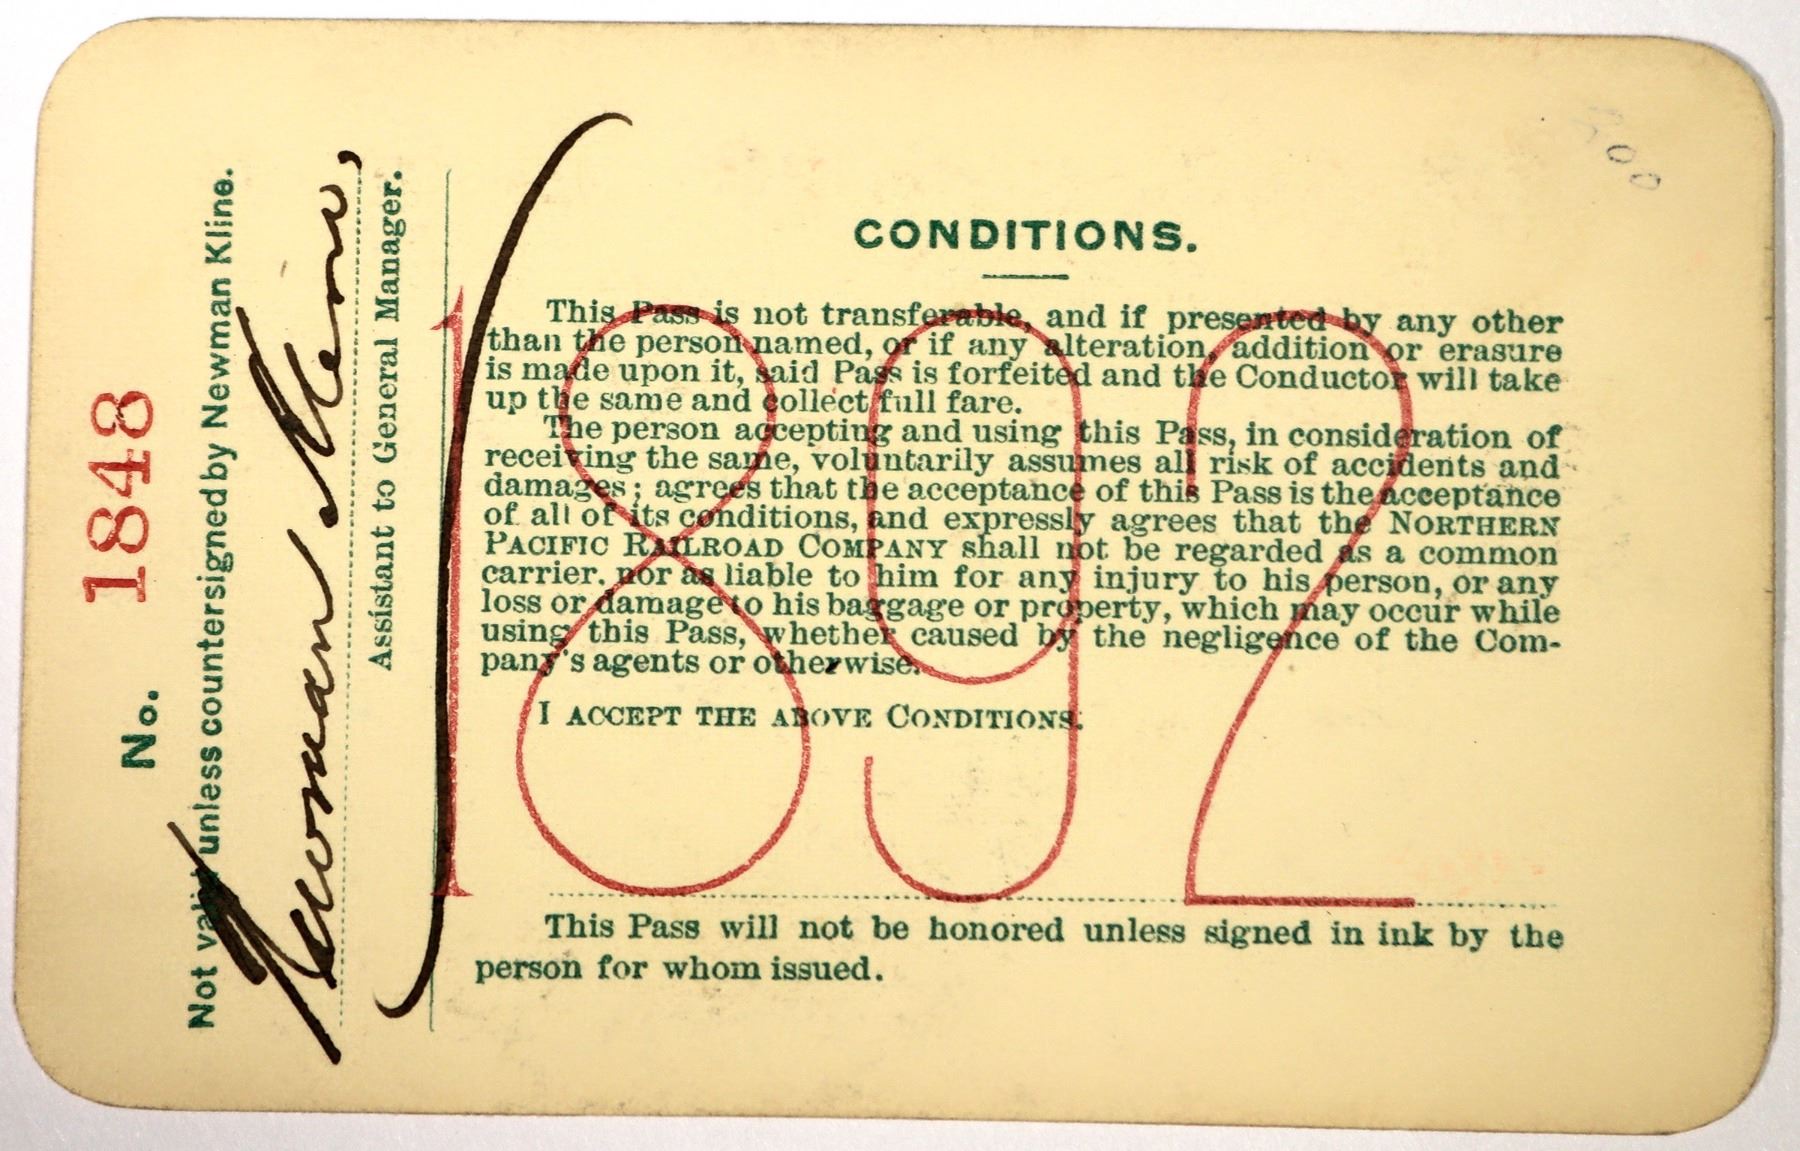 No. 1848
Not valid unless countersigned by Newman Kline.
Newman Kline
Assistant to General Manager.
CONDITIONS.
This Pass is not transferable, and if presented by any other
than the person named, or if any alteration, addition or erasure
is made upon it, said Pass is forfeited and the Conductor will take
up the same and collect full fare.
The person accepting and using this Pass, in consideration of
receiving the same, voluntarily assumes all risk of accidents and
damages; agrees that the acceptance of this Pass is the acceptance
of all of its conditions, and expressly agrees that the NORTHERN
PACIFIC RAILROAD COMPANY shall not be regarded as a common
carrier, nor as liable to him for any injury to his person, or any
loss or damage to his baggage or property, which may occur while
using this Pass, whether caused by the negligence of the Com-
pany's agents or otherwise.
I ACCEPT THE ABOVE CONDITIONS.
1892
This Pass will not be honored unless signed in ink by the
person for whom issued.